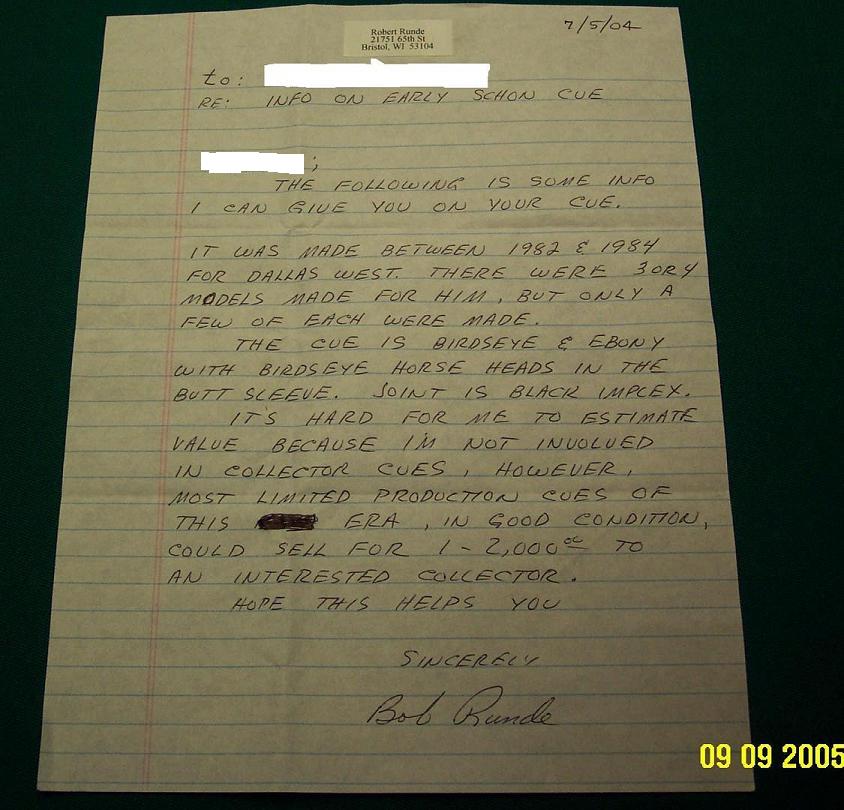 Robert Runde
21751 65th St
Bristol, WI 53104
7/5/04
to:
RE: INFO ON EARLY SCHON CUE
;
THE FOLLOWING IS SOME INFO
I CAN GIVE YOU ON YOUR CUE.
IT WAS MADE BETWEEN 1982 & 1984
FOR DALLAS WEST. THERE WERE 3 OR 4
MODELS MADE FOR HIM, BUT ONLY A
FEW OF EACH WERE MADE.
THE CUE IS BIRDSEYE & EBONY
WITH BIRDSEYE HORSE HEADS IN THE
BUTT SLEEVE. JOINT IS BLACK IMPLEX.
IT'S HARD FOR ME TO ESTIMATE
VALUE BECAUSE I'M NOT INVOLVED
IN COLLECTOR CUES, HOWEVER,
MOST LIMITED PRODUCTION CUES OF
THIS ERA, IN GOOD CONDITION,
COULD SELL FOR 1-2,000.00 TO
AN INTERESTED COLLECTOR.
HOPE THIS HELPS YOU
SINCERELY
Bob Runde
09 09 2005